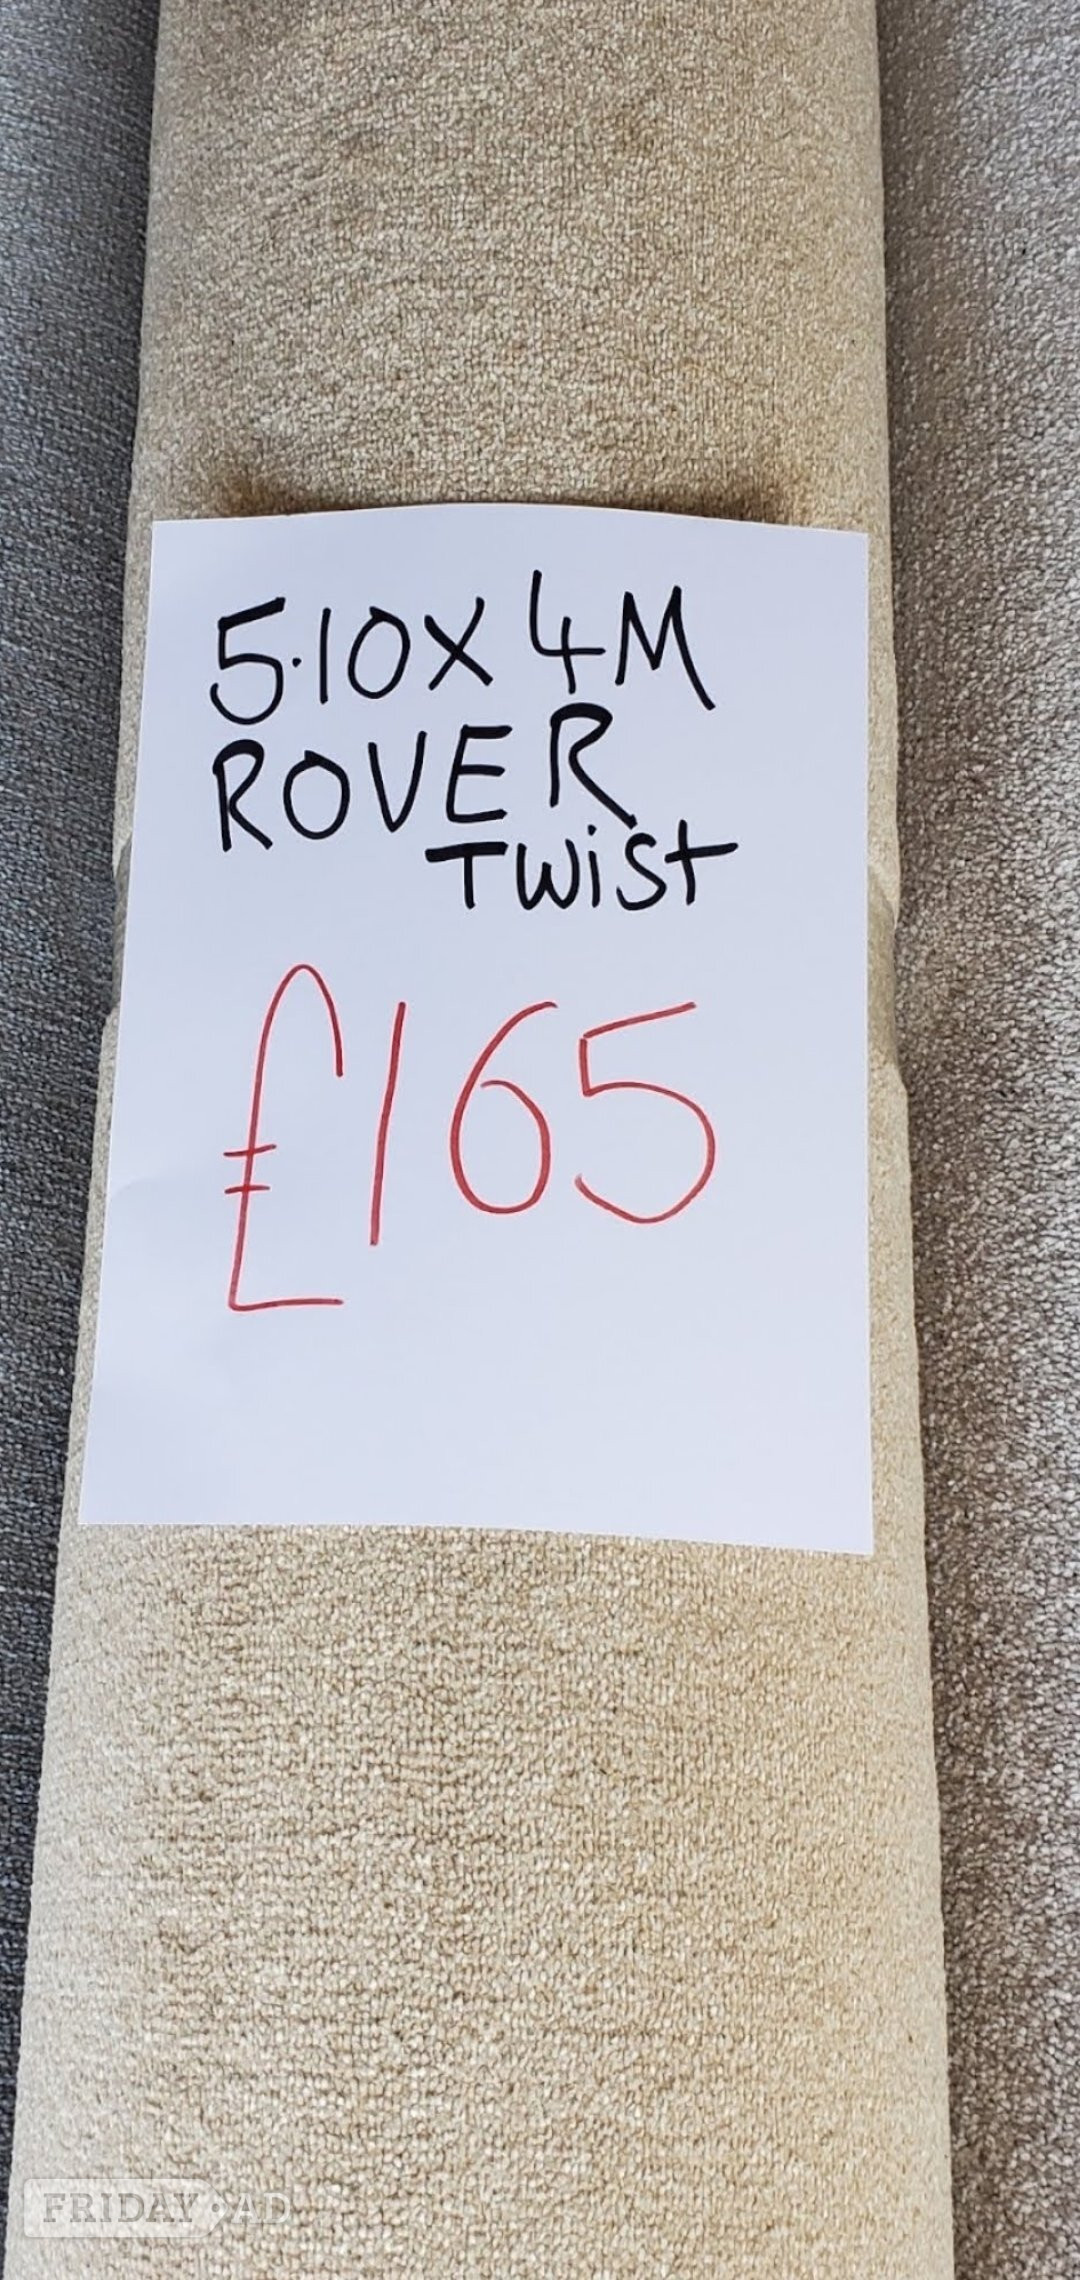 5.10X 4M
ROVER
TWiSt
£165
FRIDAY-AD